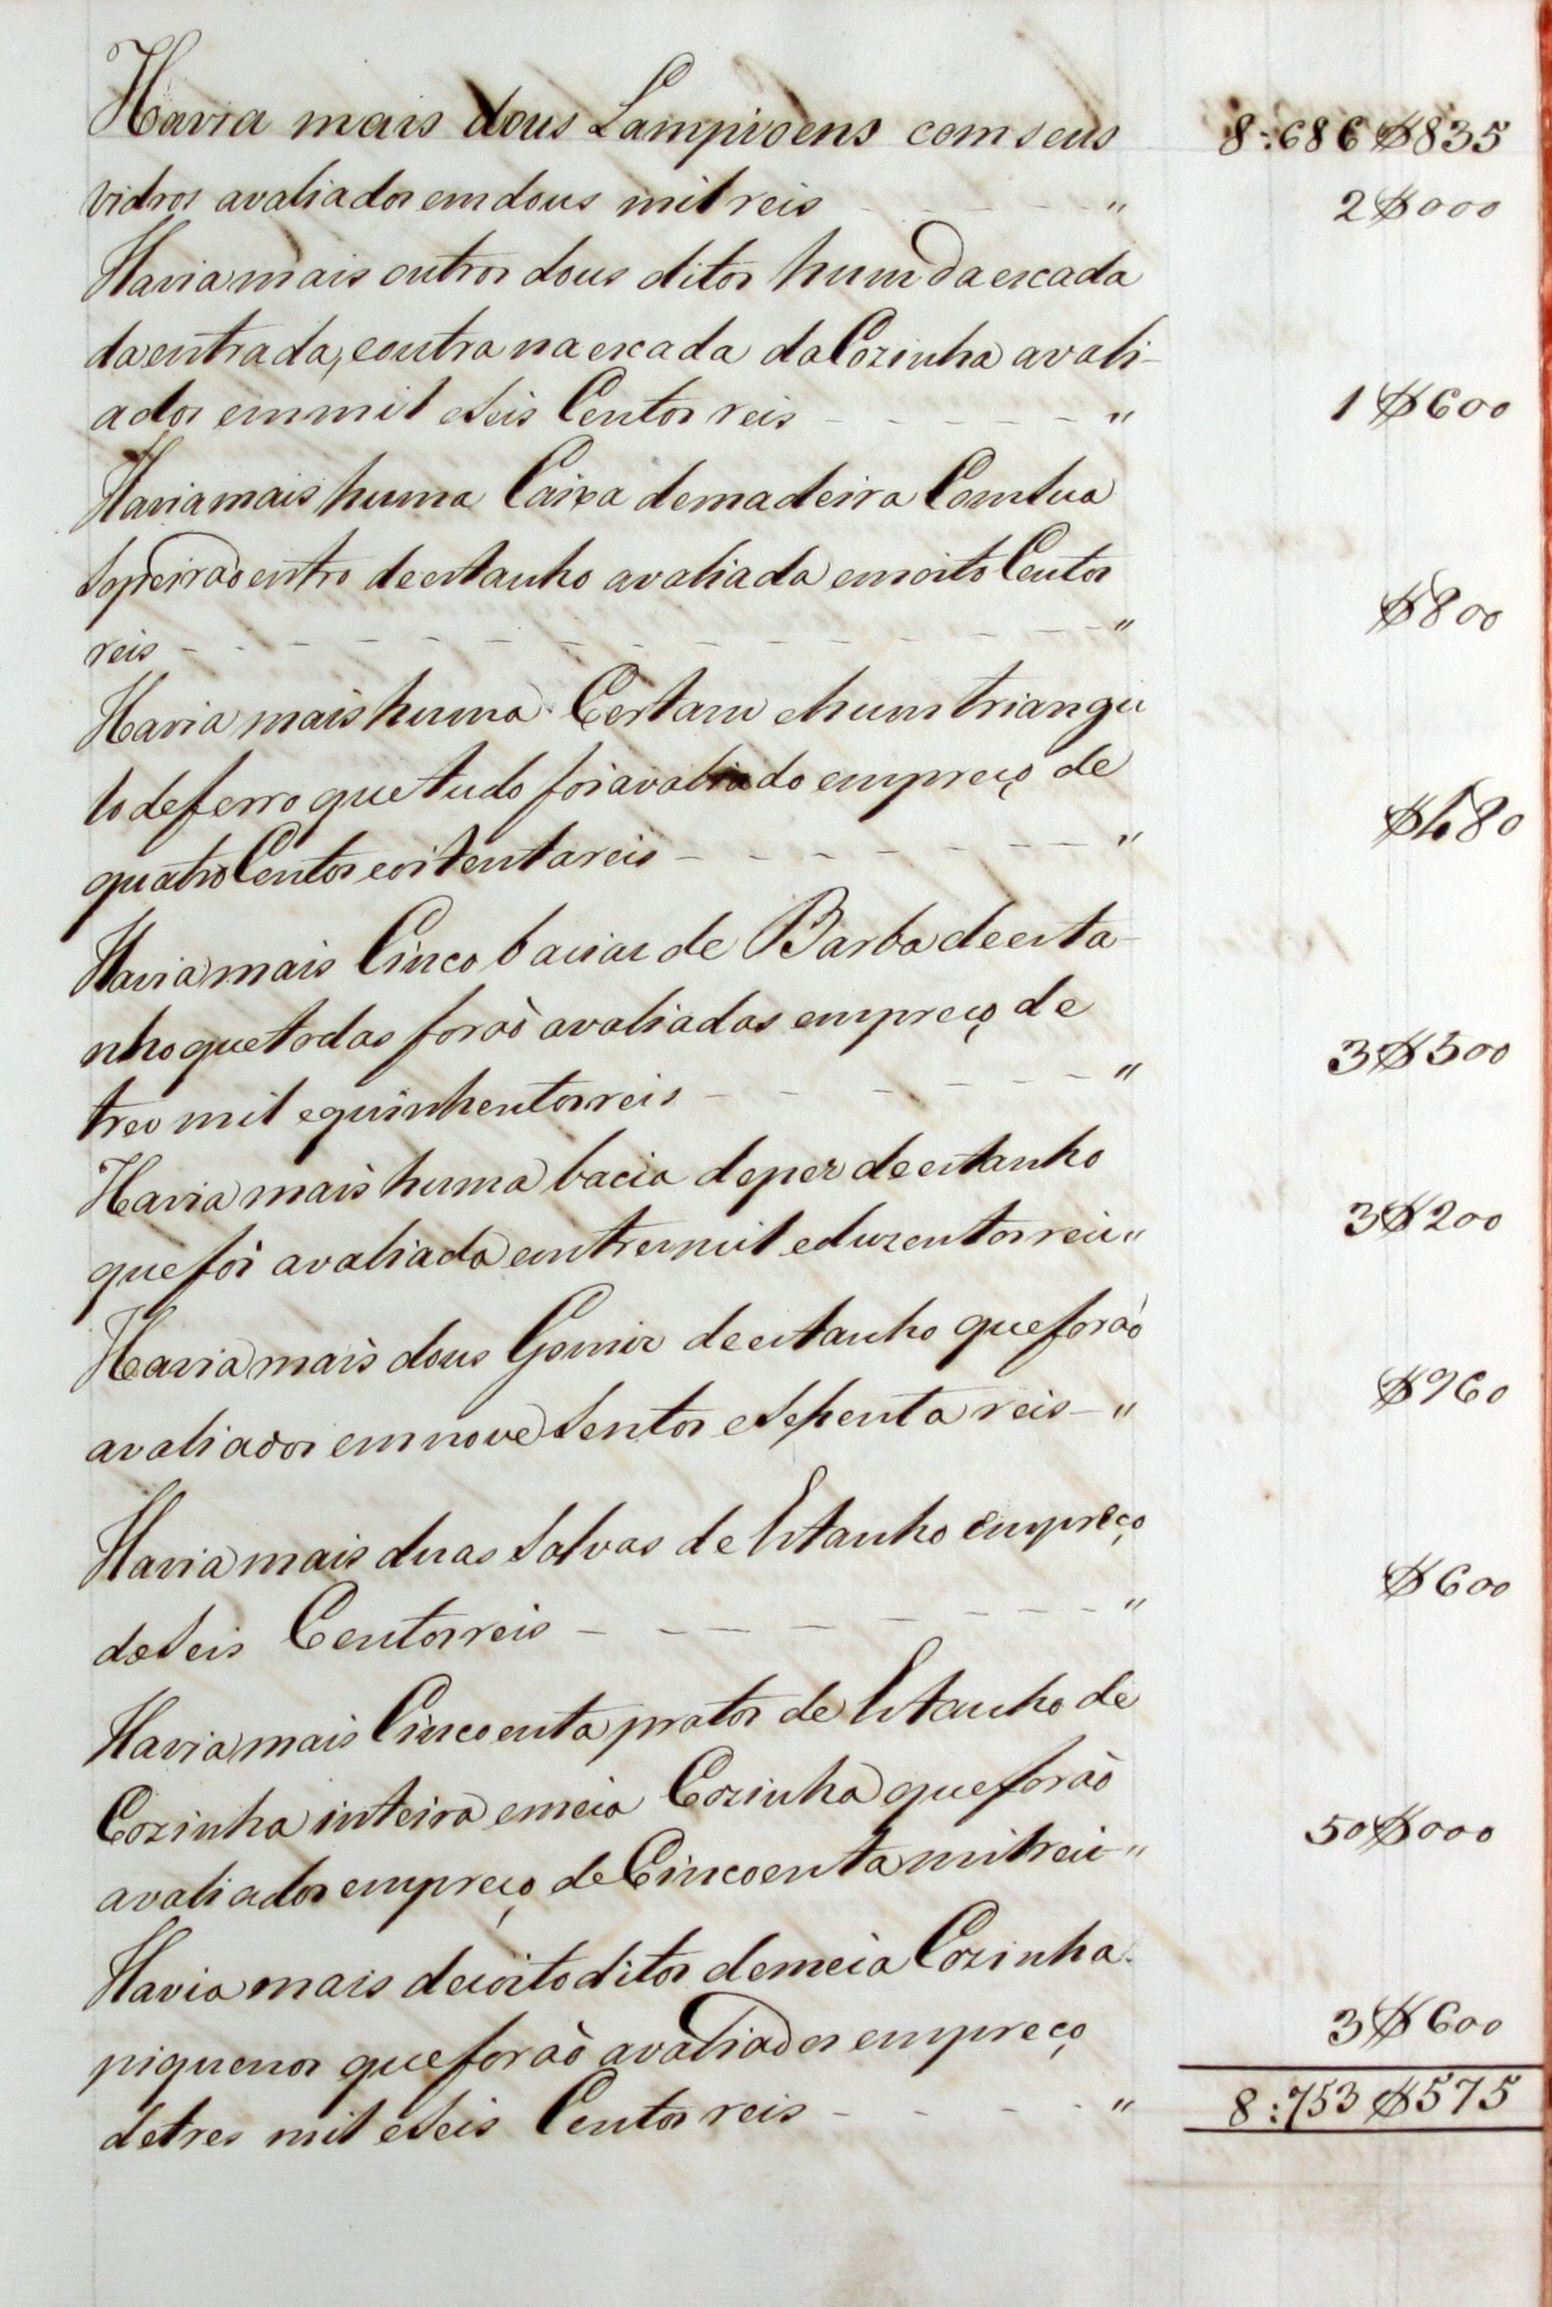 Havia mais dous Lampioens com seus 8:686$835
vidros avaliados em dous mil reis " 2$000
Havia mais outros dous ditos hum da escada
da entrada, e outra na escada da Cozinha avali-
ados em mil e Seis Centos reis " 1$600
Havia mais huma Caixa de madeira Com Sua
dentro de estanho avaliada em oito Centos
reis " $800
Havia mais huma Certam e hum triangu
lo de ferro que tudo foi avaliado em preço de
quatro Centos e oitenta reis " $480
Havia mais Cinco bacias de Barba de esta-
nho que todas foraõ avaliadas em preço de
tres mil e quinhentos reis " 3$500
Havia mais huma bacia de pez de estanho
que foi avaliada em tres mil e duzentos reis " 3$200
Havia mais dous Gomiz de estanho que foraõ
avaliados em nove Sentos e Sesenta reis " $960
Havia mais duas Salvas de Estanho em preço
de Seis Centos reis " $600
Havia mais Cincoenta pratos de Estanho de
Cozinha inteira e meia Cozinha que foraõ
avaliados em preço de Cincoenta mil reis " 50$000
Havia mais decoito ditos de meia Cozinha
piquenos que foraõ avaliados em preço
de tres mil e Seis Centos reis " 3$600
8:753$575